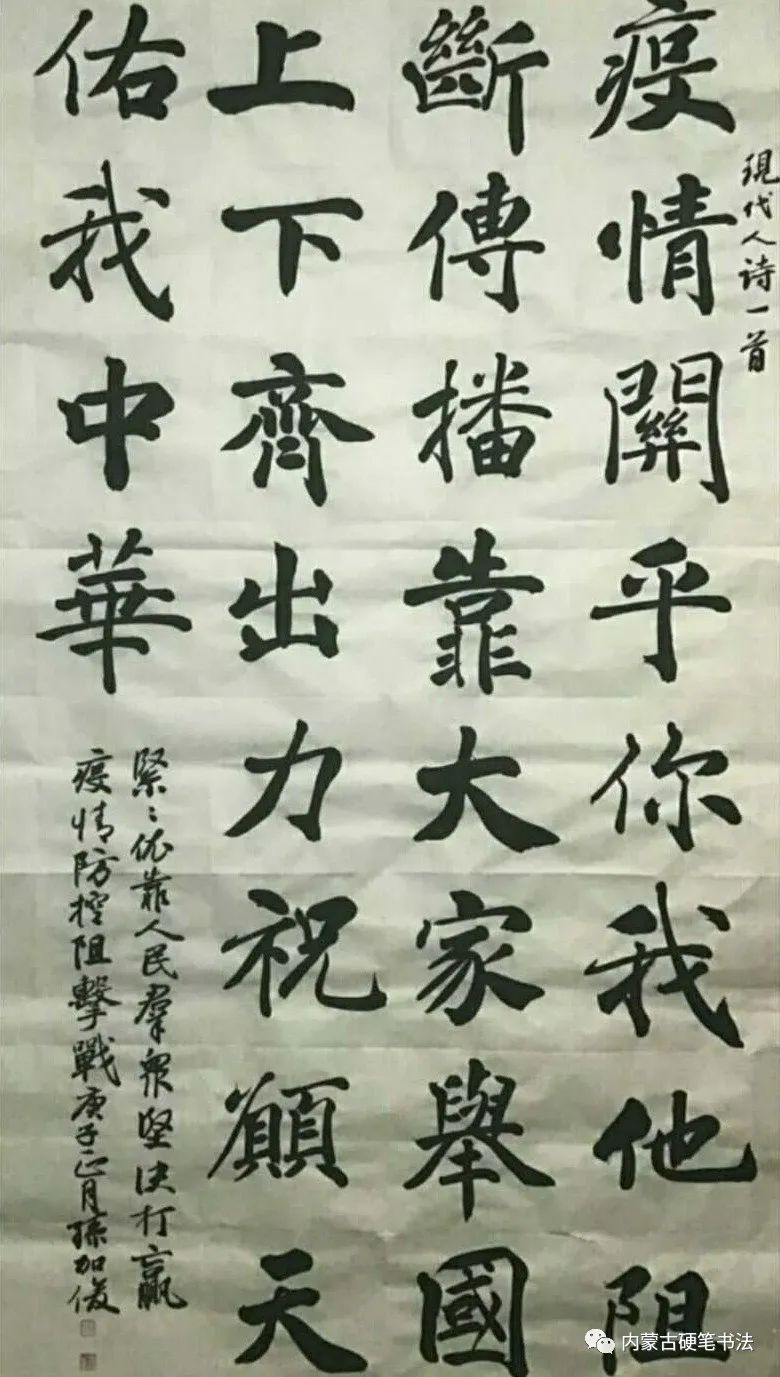 現代人诗一首
疫情關乎你我他阻
斷傳播靠大家舉國
上下齊出力祝願天
佑我中華
緊〻依靠人民羣衆坚决打赢
疫情防控阻擊戰庚子正月孫加俊
内蒙古硬笔书法